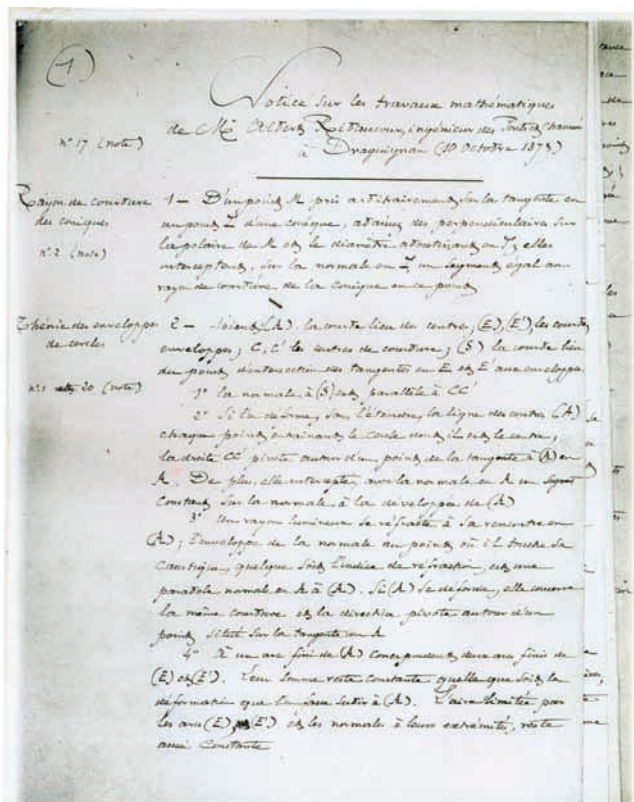 (1)
Notice sur les travaux mathématiques
de Mr Albert Ribaucour, ingénieur des Ponts et Chaussées
à Draguignan (10 Octobre 1873)
n° 17 (note)
Rayon de courbure
des coniques
n° 2 (note)
1 — D'un point M pris arbitrairement sur la tangente en
un point I d'une conique, abaissez des perpendiculaires sur
la polaire de M et le diamètre aboutissant en I, elles
interceptent, sur la normale en I un segment égal au
rayon de courbure de la conique en ce point
Théorie des enveloppes
de cercles
n° 1 20 (note)
2 — Soient (A) la courbe lieu des centres, (E), (E'), les courbes
enveloppes; C, C' les centres de courbure; (S) la courbe lieu
du point d'intersection des tangentes en E et E' aux enveloppes
1° la normale à (S) est parallèle à CC'
2° Si l'on déforme, sans l'étendre, la ligne des centres (A)
chaque point entrainant le cercle dont il est le centre,
la droite CC' pivote autour d'un point de la tangente à (A) en
A. De plus, elle intercepte, avec la normale en A un segment
constant sur la normale à la développée de (A)
3° Un rayon lumineux se réfracte à sa rencontre en
(A); l'enveloppe de la normale au point où il touche sa
caustique, quelque soit l'indice de réfraction, est une
parabole normale en A à (A). Si (A) se déforme, elle conserve
la même courbure et la directrice pivote autour d'un
point situé sur la tangente en A
4° À un arc fini de (A) correspondent deux arcs finis de
(E) et (E'). Leur somme reste constante quelle que soit la
déformation que l'on fasse subir à (A). L'aire limitée par
les arcs (E), (E') et les normales à leurs extrémités, reste
aussi constante